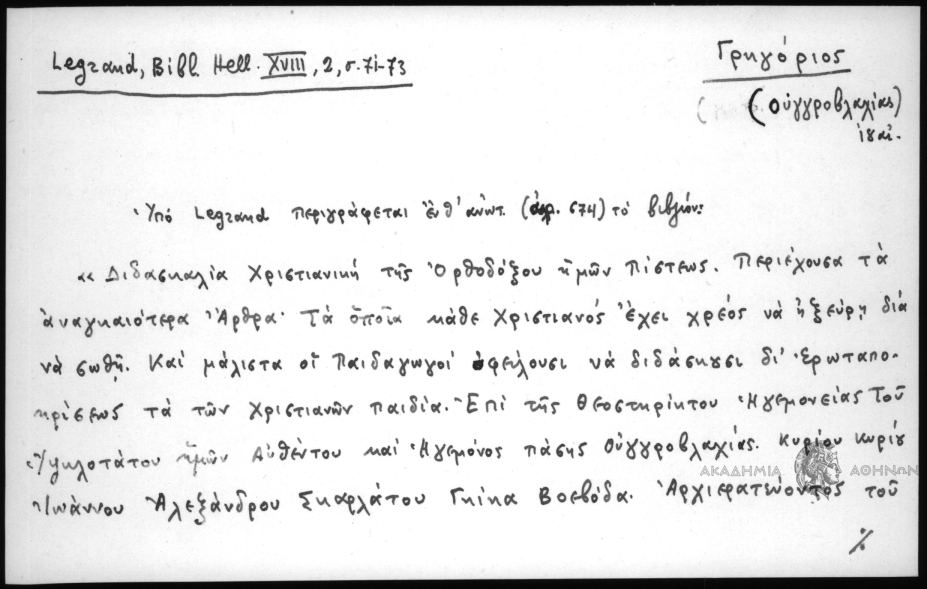 Legrand, Bibl. Hell. XVIII, 2, σ. 71-73
Γρηγόριος
(Οὑγγροβλαχίας)
ιη΄ αἰ.
Ὑπό Legrand περιγράφεται ἔνθ' ἀνωτ. (ἀρ. 674) τό βιβλίον:
«Διδασκαλία Χριστιανική τῆς Ὀρθοδόξου ἡμῶν Πίστεως. Περιέχουσα τά
ἀναγκαιότερα Ἄρθρα· Τά ὁποῖα κάθε Χριστιανός ἔχει χρέος νά ἠξεύρῃ διά
νά σωθῇ. Καί μάλιστα οἱ Παιδαγωγοί ὀφείλουσι νά διδάσκῃσι δι' Ἐρωταπο-
κρίσεως τά τῶν Χριστιανῶν παιδία. Ἐπί τῆς θεοστηρίκτου Ἡγεμονείας Τοῦ
Ὑψηλοτάτου ἡμῶν Αὐθέντου καί Ἡγεμόνος πάσης Οὑγγροβλαχίας. Κυρίου Κυρίȣ
Ἰωάννου Ἀλεξάνδρου Σκαρλάτου Γκίκα Βοεβόδα. Ἀρχιερατεύοντος τοῦ
ΑΚΑΔΗΜΙΑ ΑΘΗΝΩΝ
%